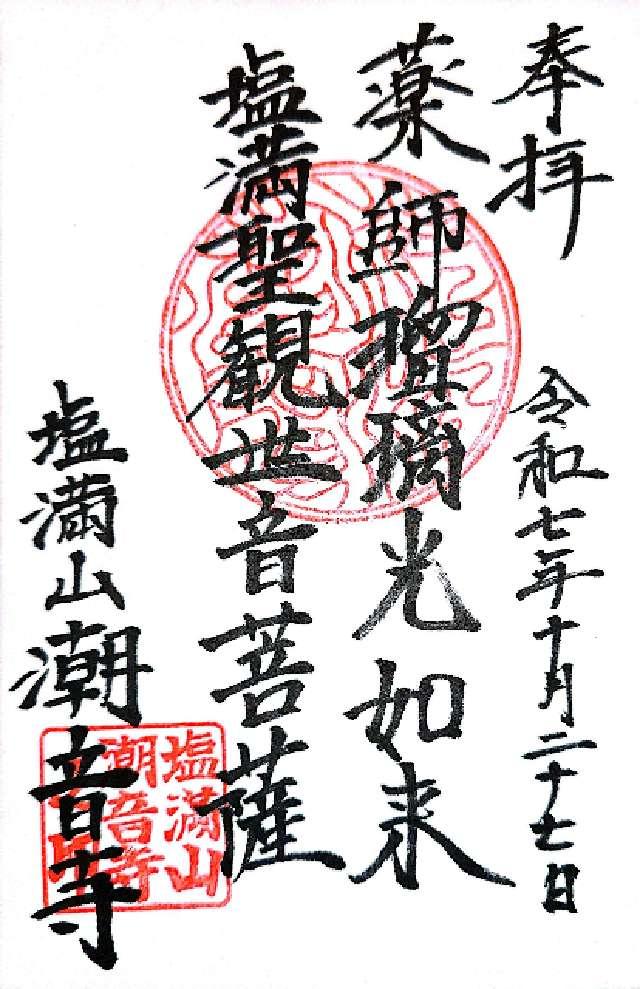 奉拝
令和七年十月二十七日
薬師瑠璃光如来
塩満聖観世音菩薩
塩満山潮音寺
塩満山
潮音寺